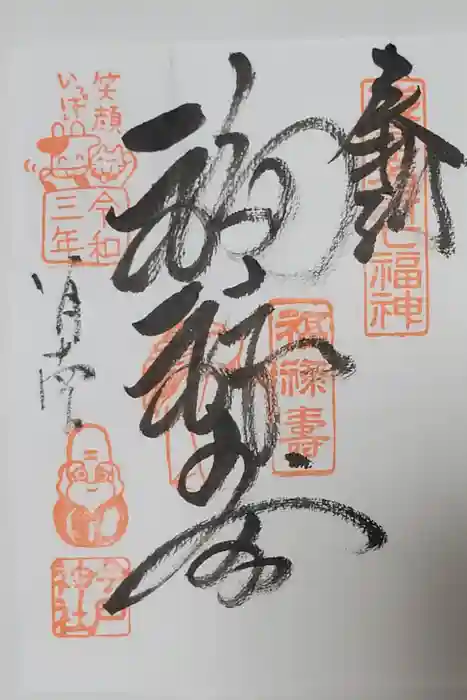 奉拝
七福神
福禄寿
福禄寿
笑顔
いっぱい
令和
三年
今戸
神社